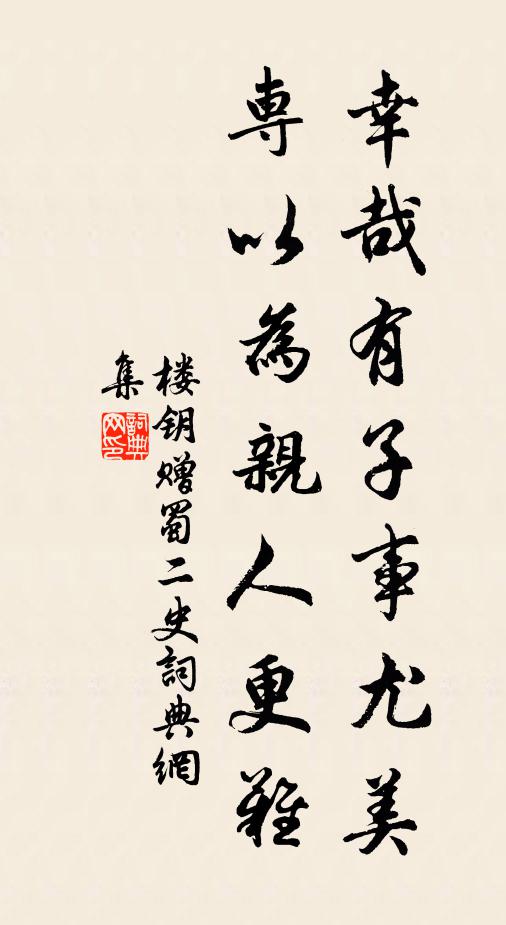 幸哉有子事尤美
専以為親人更難
楼钥赠蜀二史詞典網
集
詞典网印